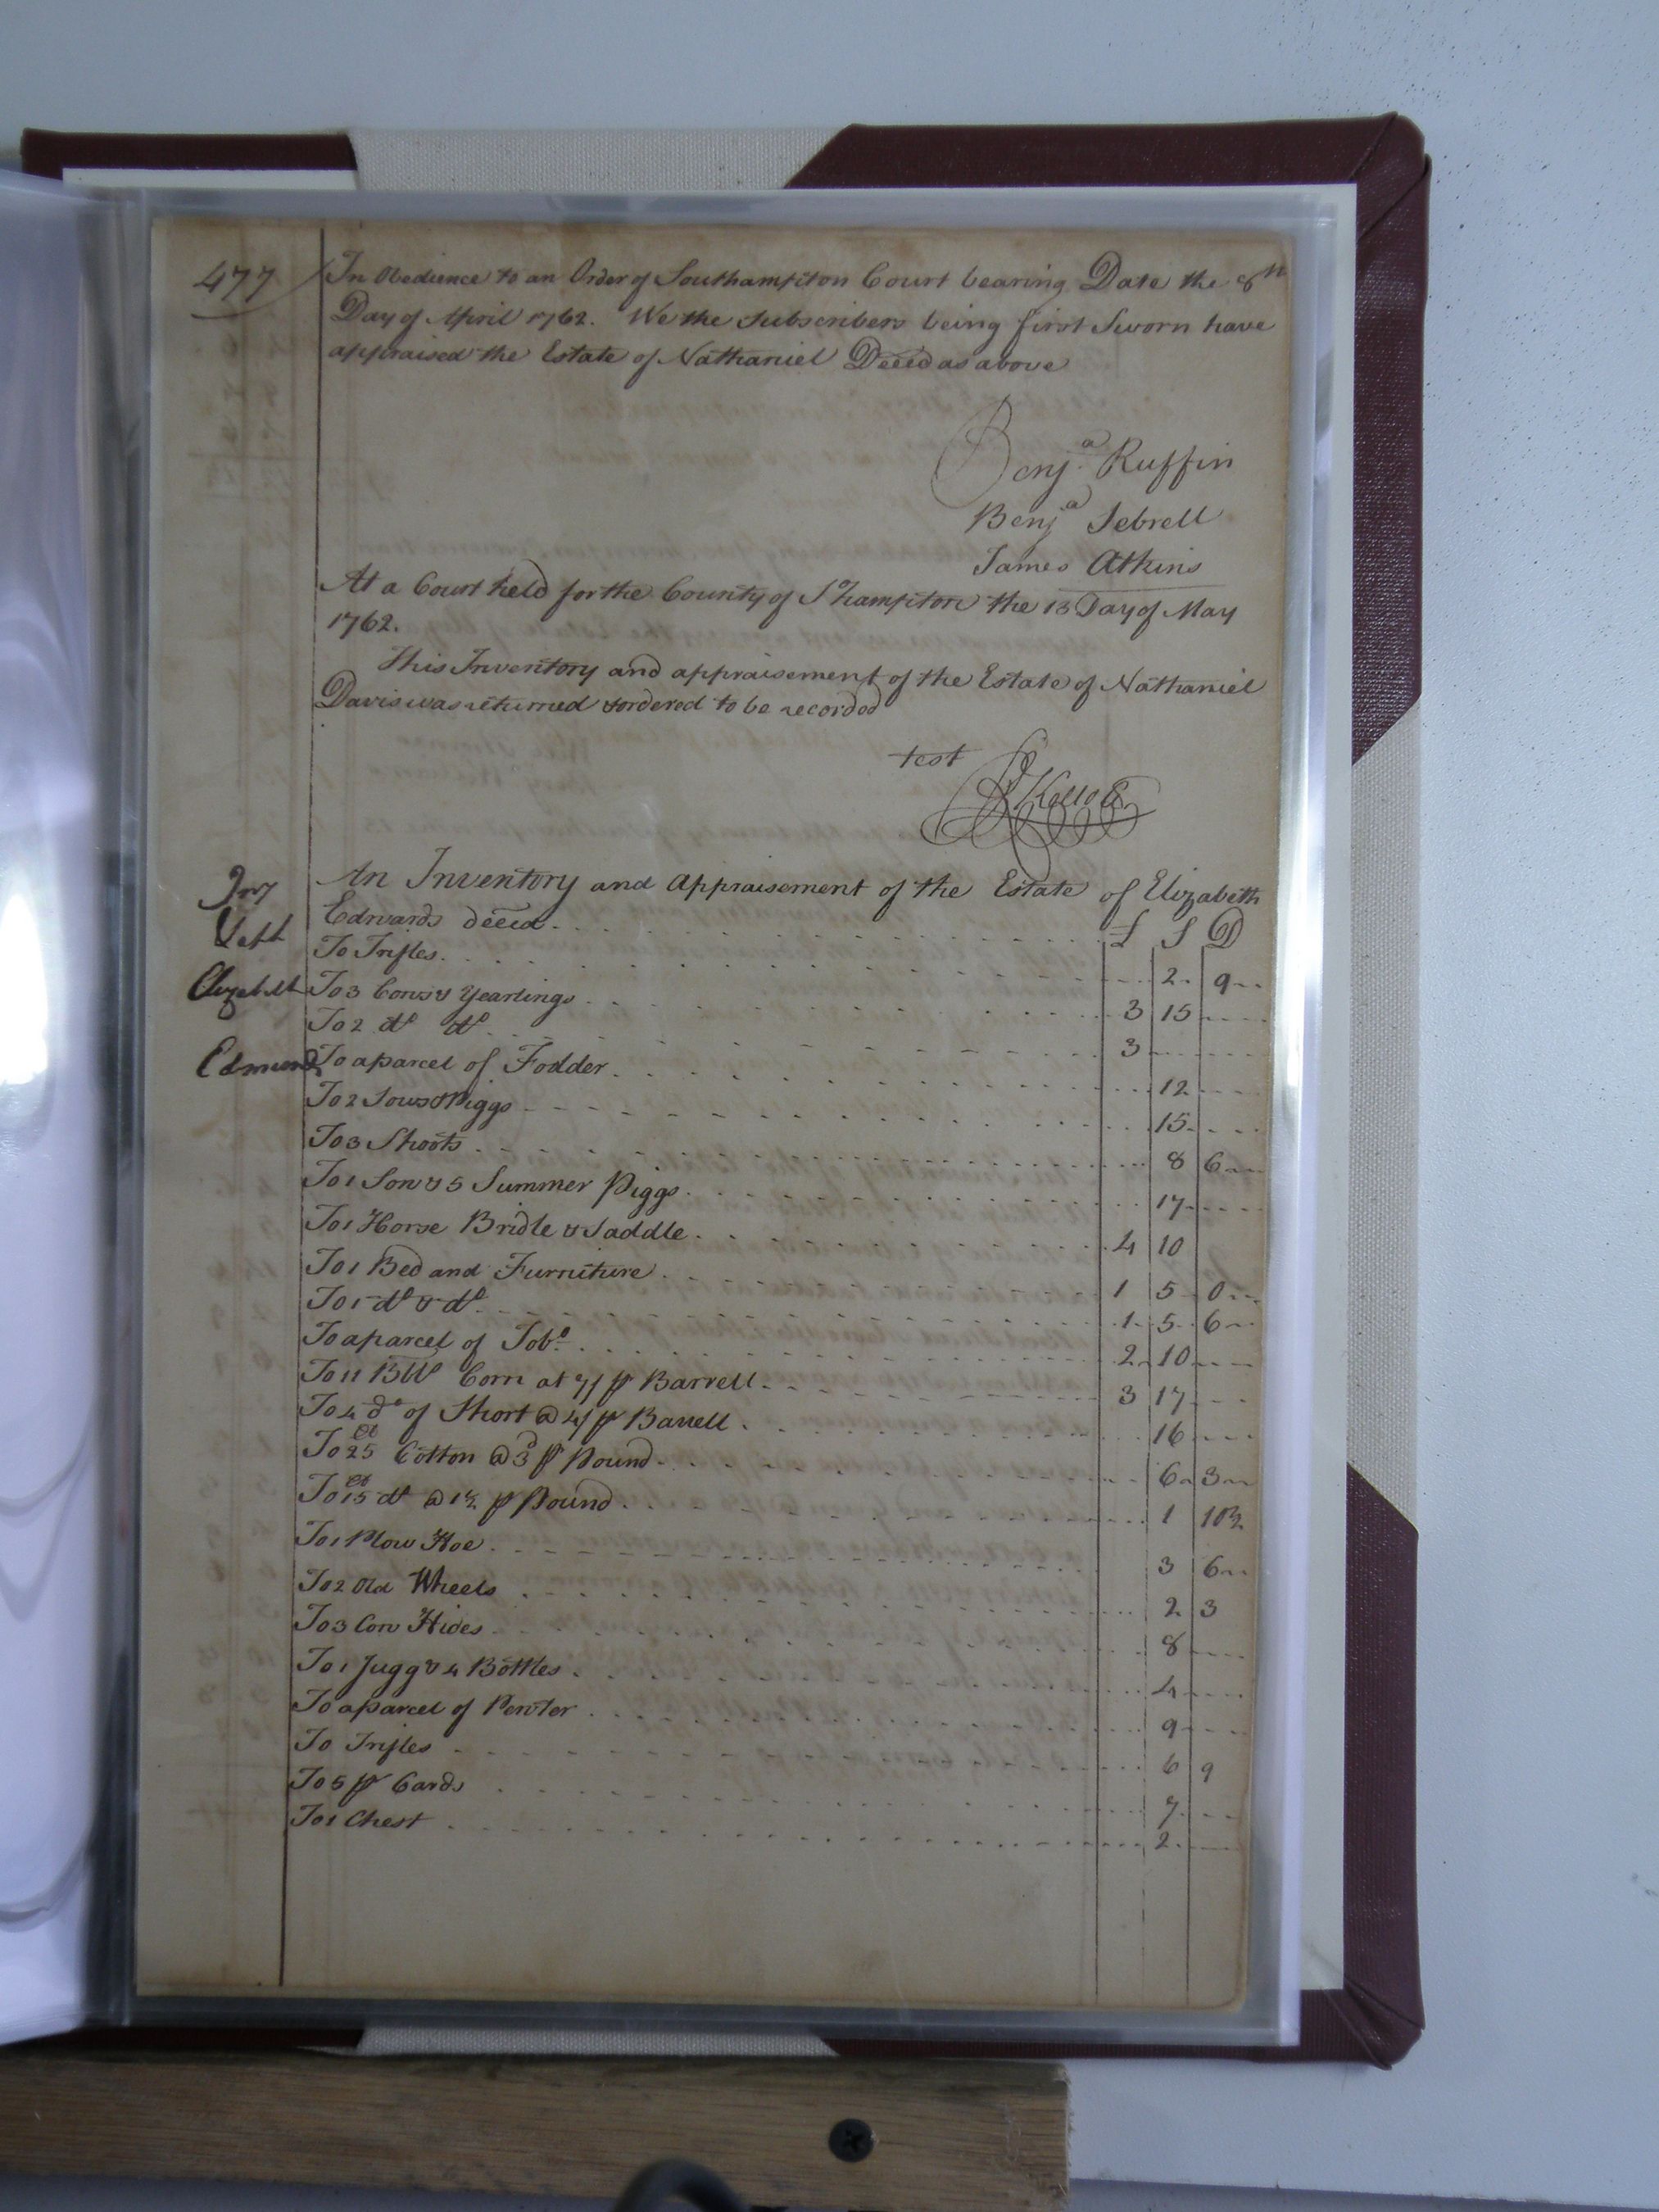 477
In Obedience to an Order of Southampton Court bearing Date the 8th
Day of April 1762. We the Subscribers being first Sworn have
appraised the Estate of Nathaniel Deced as above
Benja. Ruffin
Benja Sebrell
James Atkins
At a Court held for the County of S'hampton the 13 Day of May
1762.
This Inventory and appraisement of the Estate of Nathaniel
Davis was returned & ordered to be recorded
test
Inv
An Inventory and Appraisement of the Estate of Elizabeth
Edwards deced. £ S D
To Trifles. 2 9
To 3 Cows & Yearlings 3 15
To 2 do do 3
To a parcel of Fodder 12
To 2 Sows & Piggs 15
To 3 Shoots 8 6
To 1 Sow & 5 Summer Piggs 17
To 1 Horse Bridle & Saddle 4 10
To 1 Bed and Furniture 1 5 0
To 1 do & do 1 5 6
To a parcel of Tobo. 2 10
To 11 Bll Corn at 7/ p Barrell 3 17
To 4 do of Short @ 4/ p Barrell 16
To 25 lb Cotton @ 3d p Pound 6 3
To 15 lb do @ 1½ p Pound 1 10½
To 1 Plow Hoe 3 6
To 2 Old Wheels 2 3
To 3 Cow Hides 8
To 1 Jugg & 4 Bottles 4
To a parcel of Pewter 9
To Trifles 6 9
To 5 pr Cards 7
To 1 Chest 2